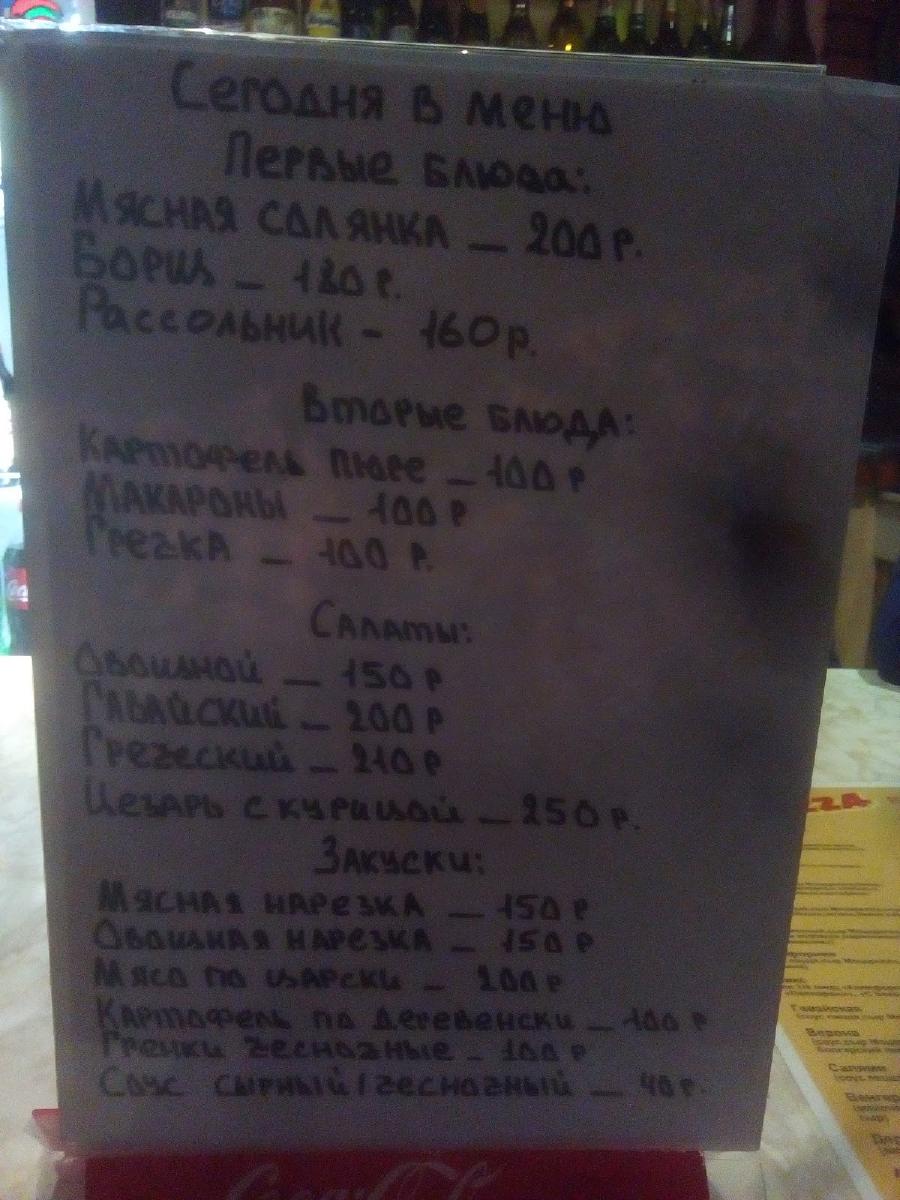 Сегодня в меню
Первые блюда:
Мясная солянка — 200 р.
Борщ — 180 р.
Рассольник - 160 р.
Вторые блюда:
Картофель пюре — 100 р
Макароны — 100 р
Гречка — 100 р.
Салаты:
Овощной — 150 р
Гавайский — 200 р
Греческий — 210 р
Цезарь с курицой — 250 р.
Закуски:
Мясная нарезка — 150 р
Овощная нарезка — 150 р
Мясо по царски — 200 р
Картофель по деревенски — 100 р
Гренки чесночные - 100 р
Соус сырный/чесночный — 40 р.
Coca-Cola
Верона